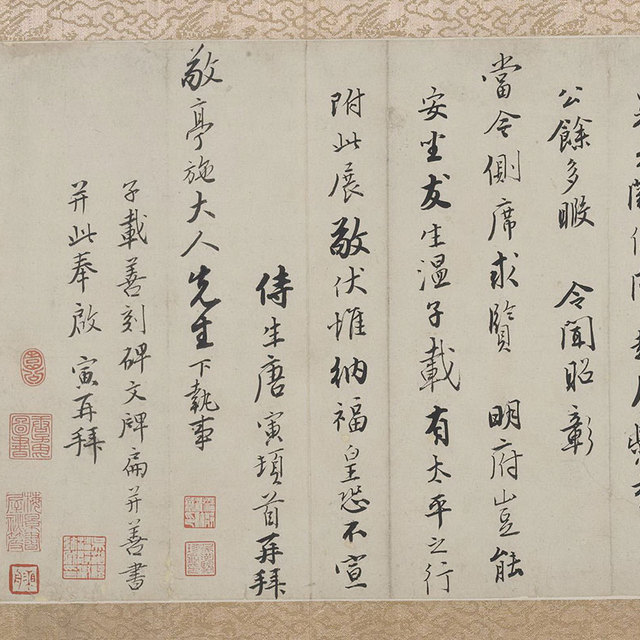 公餘多暇 令聞昭彰
當今側席求賢 明府豈能
安坐友生溫子載有太平之行
附此展敬伏惟納福皇恐不宣
侍生唐寅頓首再拜
敬亭施大人先生下執事
子載善刻碑文牌扁并善書
并此奉啟 寅再拜